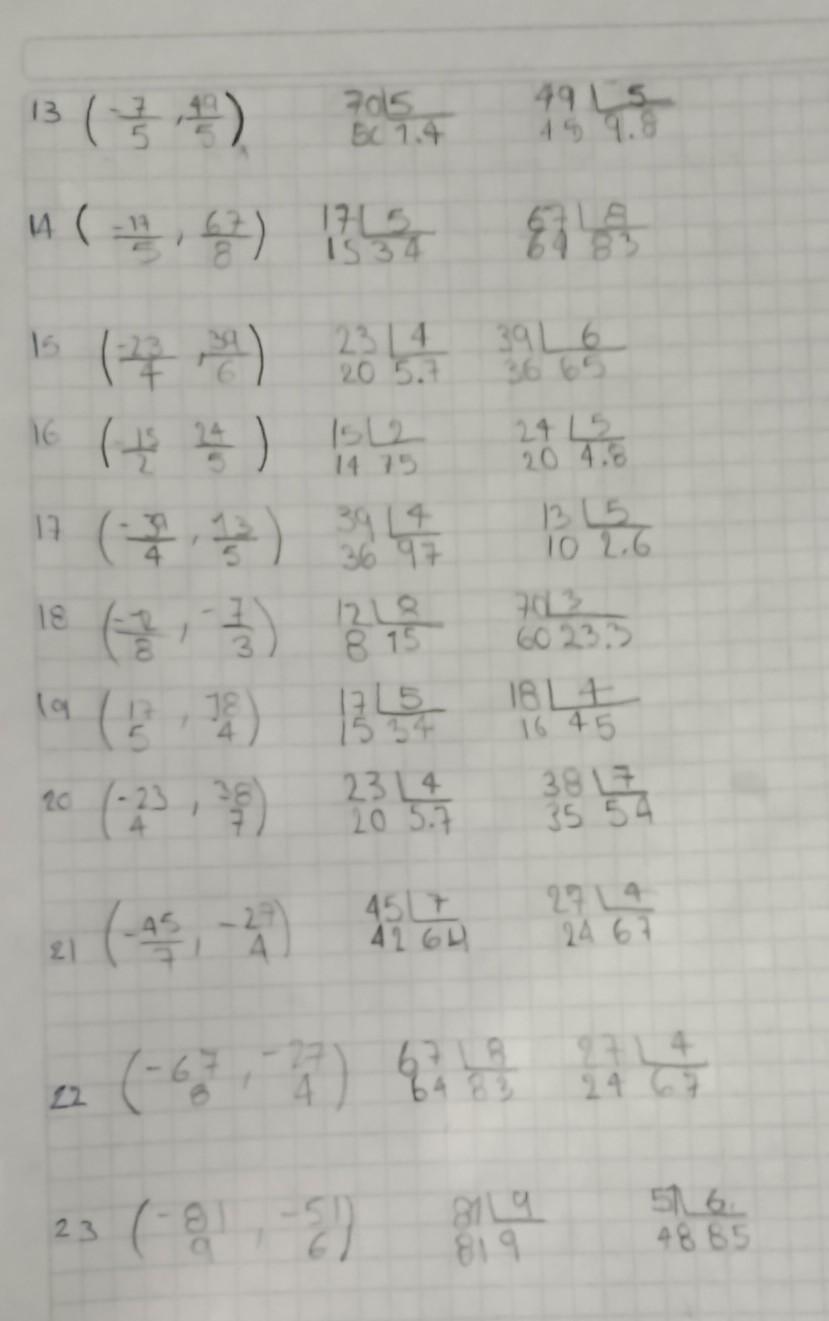 13 (-7/5, 49/5) 70 5 1.4 49 5 9.8
14 (-17/5, 67/8) 17 5 15 34 67 8 64 83
15 (-23/4, 39/6) 23 4 20 5.7 39 6 36 65
16 (-15/2 24/5) 15 2 14 75 24 5 20 4.8
17 (-39/4, 13/5) 39 4 36 97 13 5 10 2.6
18 (/8, -7/3) 12 8 8 15 70 3 60 23.3
19 (17/5, 18/4) 17 5 15 34 18 4 16 45
20 (-23/4, 38/7) 23 4 20 5.7 38 7 35 54
21 (-45/7, -27/4) 45 7 42 64 27 4 24 67
22 (-67/8, -27/4) 67 8 64 83 27 4 24 67
23 (-81/9, -51/6) 81 9 81 9 51 6 48 85